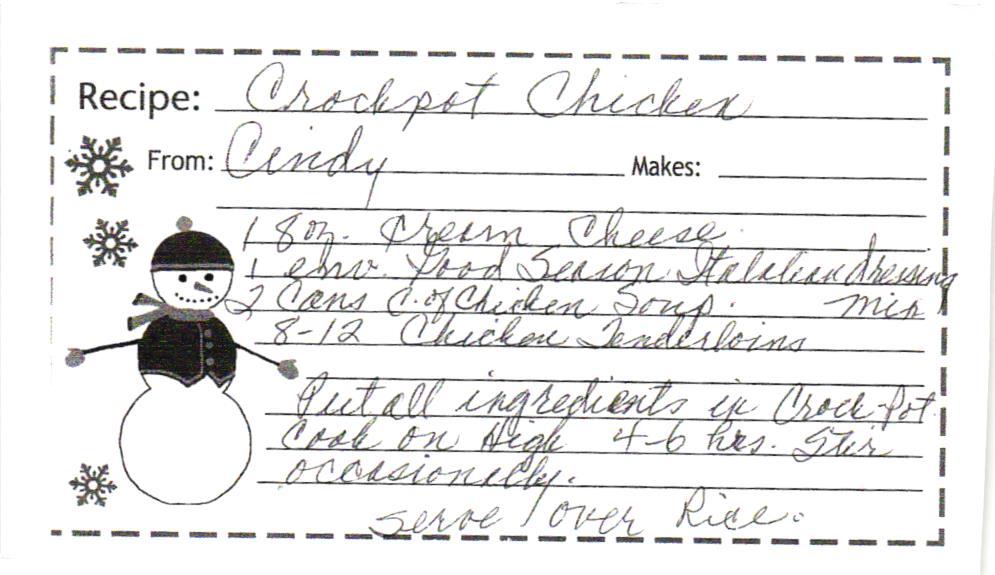 Recipe: Crockpot Chicken
From: Cindy Makes:
1 8oz. Cream Cheese
1 env. Good Season Italalian dressing
2 Cans C. of Chicken Soup. Mix
8-12 Chicken Tenderloins
Put all ingredients in Crock-Pot.
Cook on High 4-6 hrs. Stir
occasionally.
Serve over Rice.